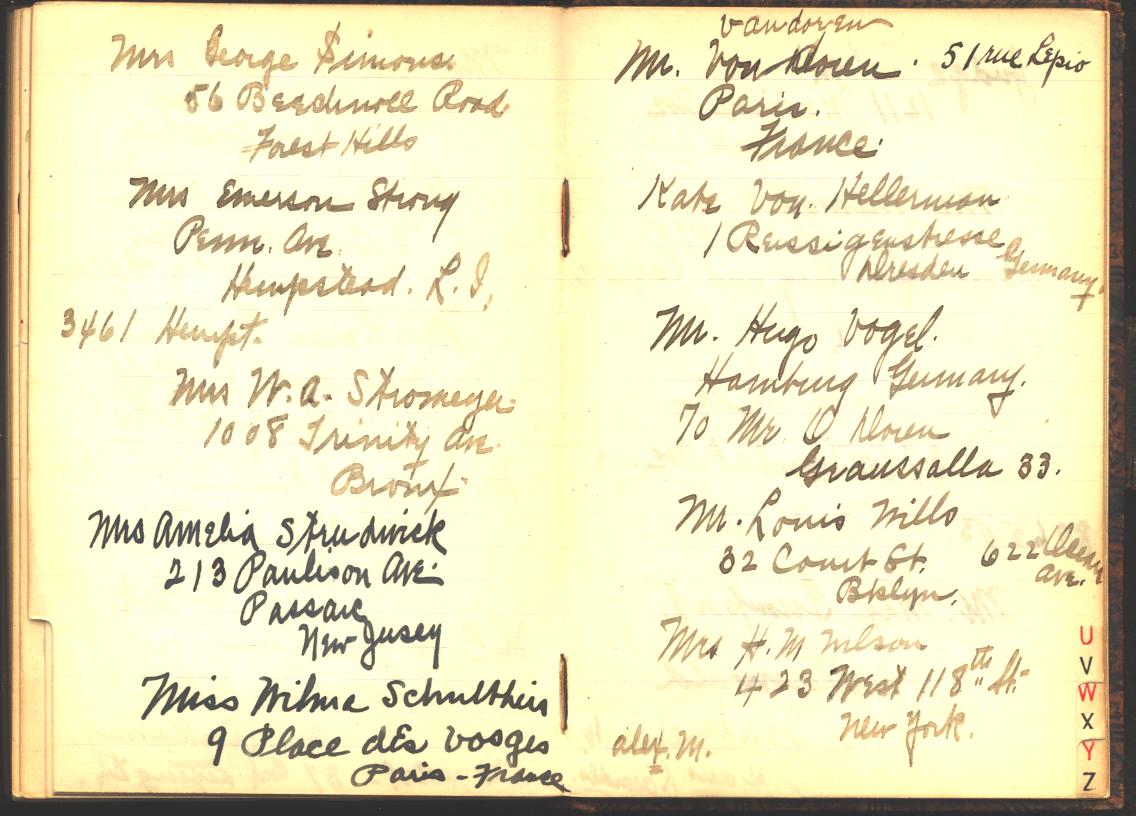 Mrs George Simons.
56 Beechnoll Road
Forest Hills
Mrs Emerson Strong
Penn. Ave
Hempstead. L. I,
3461 Hempt.
Mrs W. A. Stromeyer
1008 Trinity Ave.
Bronx
Mrs Amelia Strudwick
213 Paulison Ave.
Passaic
New Jersey
Miss Wilma Schultheis
9 Place des Vosges
Paris - France
Vandoren
Mr. Von Doren. 51 rue Lepic
Paris.
France.
Kate Von Hellerman
1 Reissigerstresse
Dresden Germany.
Mr. Hugo Vogel.
Hamburg Germany.
To Mr O Doren
Graussalla 33.
Mr. Louis Wills
32 Court St. 622 Ocean Ave.
Bklyn.
Mrs H. M Wilson
423 West 118th St.
New York.
alex. M.
U
V
W
X
Y
Z